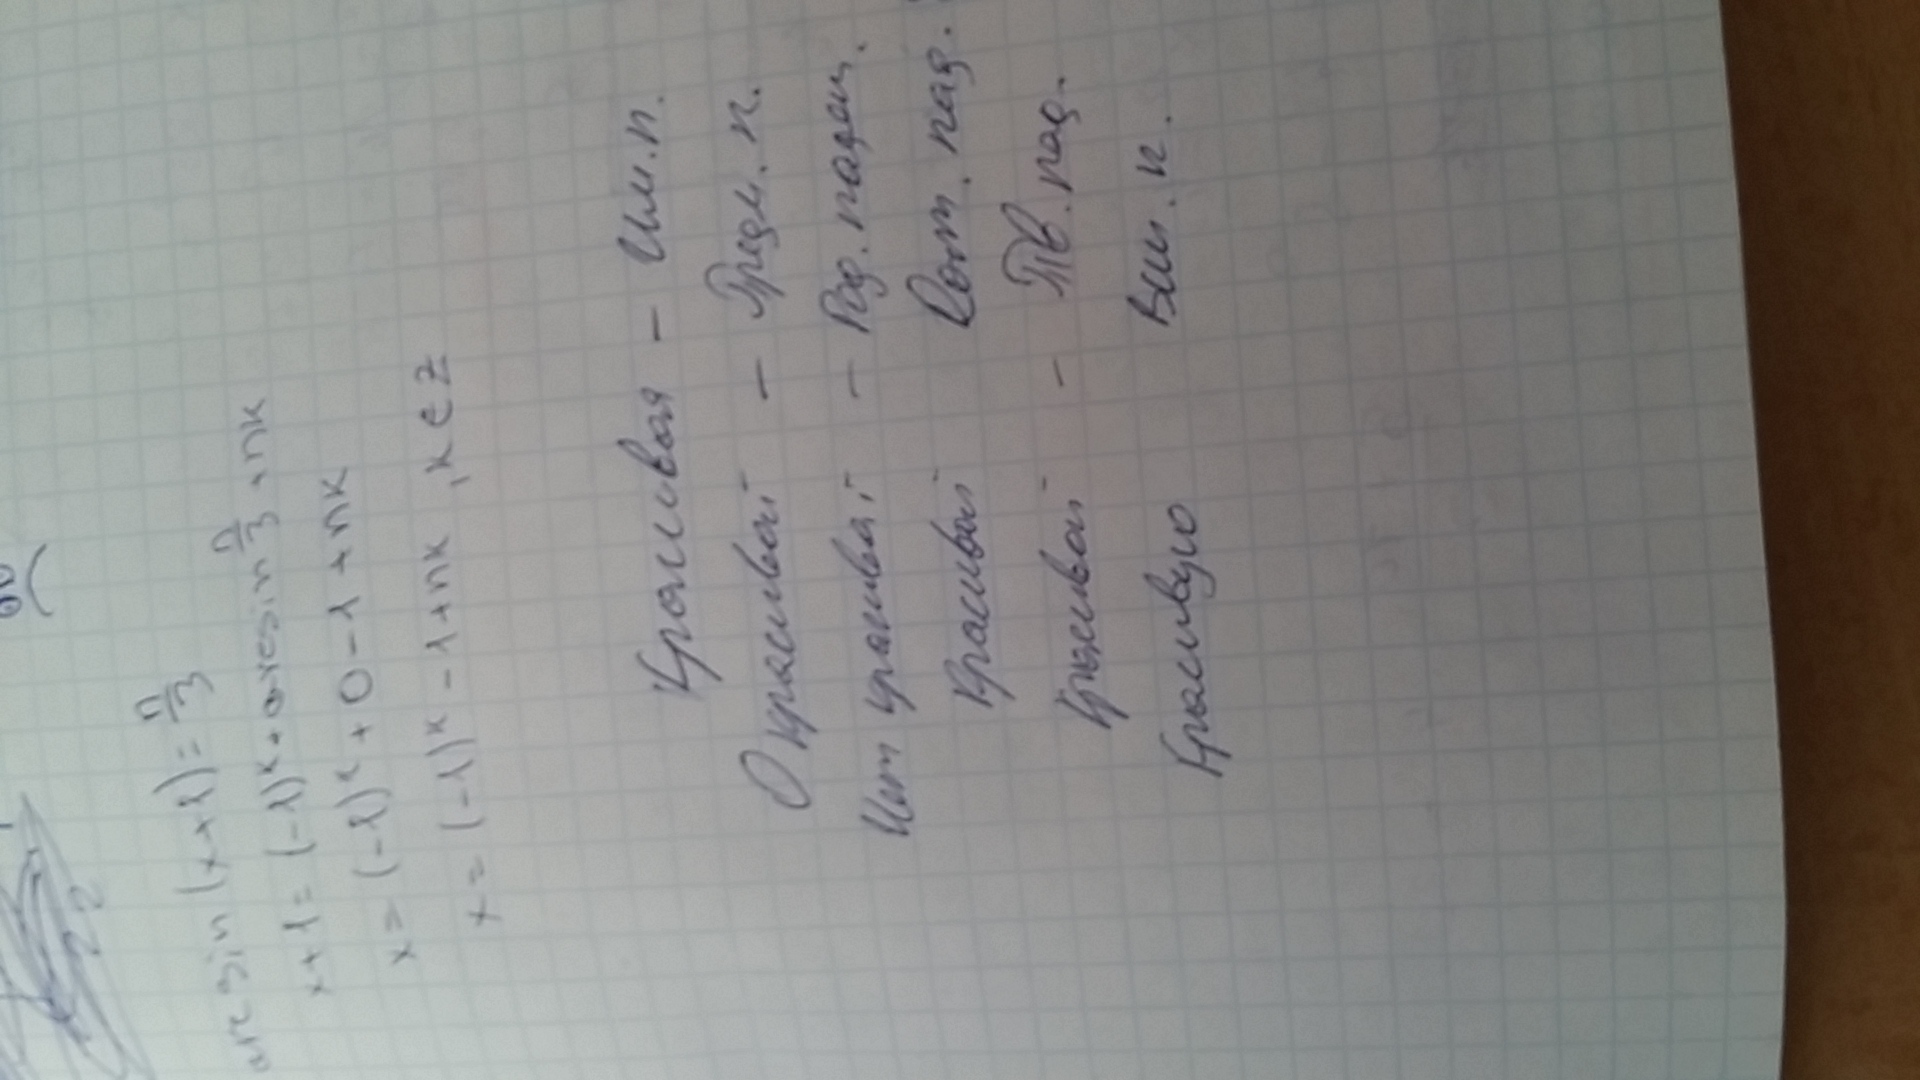 arcsin(x+1)=п/3
x+1=(-1)ᵏ·arcsin п/3+пк
x=(-1)ᵏ+0-1+пк
x=(-1)ᵏ-1+пк, к∈z
Красивая - Им.п.
О красивой - Предл. п.
Нет красивой - Род. падеж.
Красивой Дат. пад.
Красивой - Тв. пад.
Красивую Вин. п.